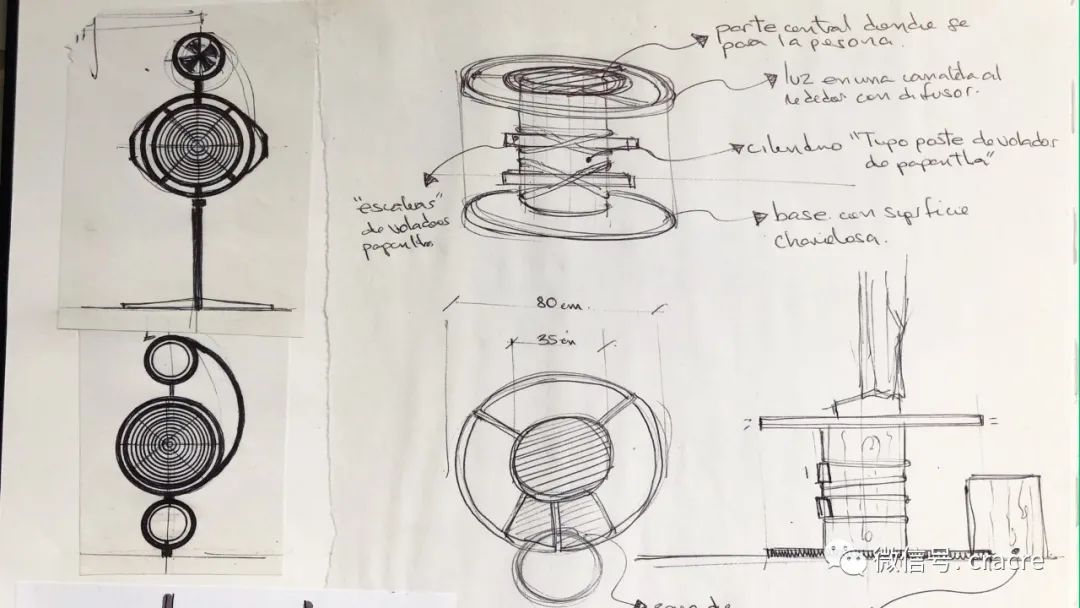 parte central donde se
para la persona.
luz en una canaleta al
rededor con difusor.
cilindro "Tipo poste de volador
de papantla"
"escaleras"
de voladores
base con superficie
80 cm.
35 cm
微信号: cracre